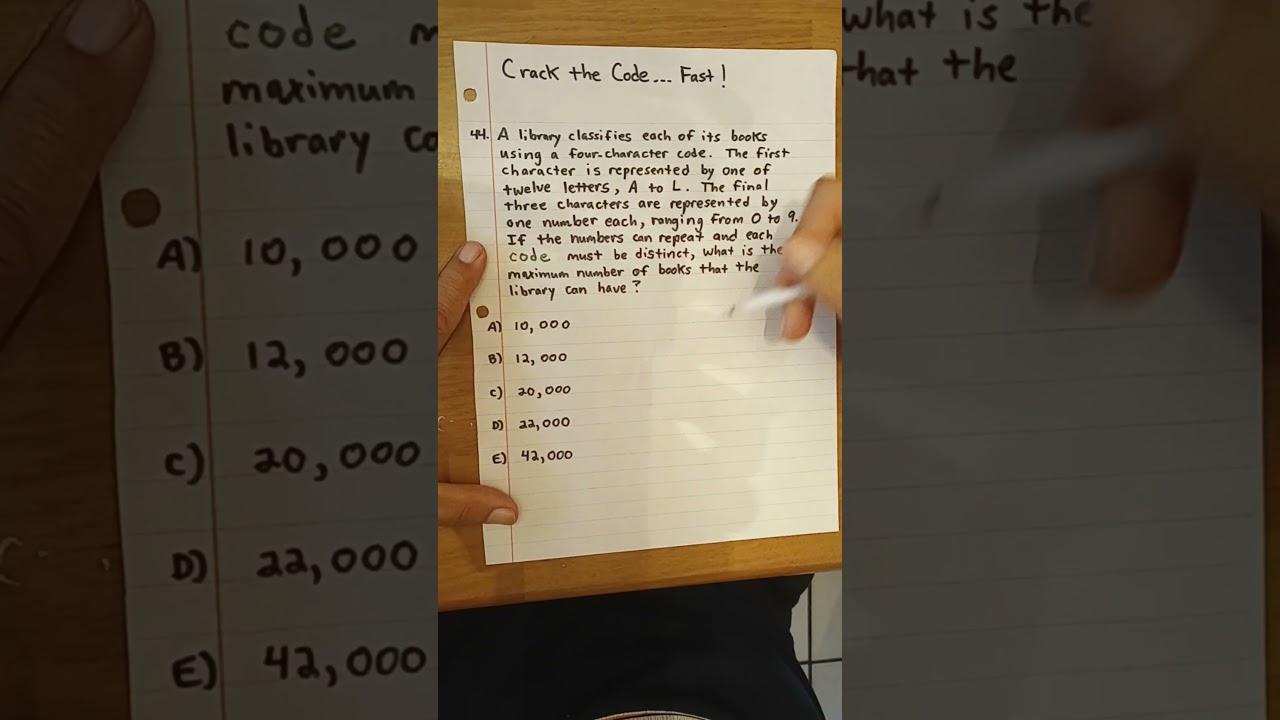 Crack the Code... Fast!
44. A library classifies each of its books
using a four-character code. The first
character is represented by one of
twelve letters, A to L. The final
three characters are represented by
one number each, ranging from 0 to 9.
If the numbers can repeat and each
code must be distinct, what is the
maximum number of books that the
library can have?
A) 10,000
B) 12,000
C) 20,000
D) 22,000
E) 42,000
code m
maximum
library co
A) 10,000
B) 12,000
C) 20,000
D) 22,000
E) 42,000
what is the
that the